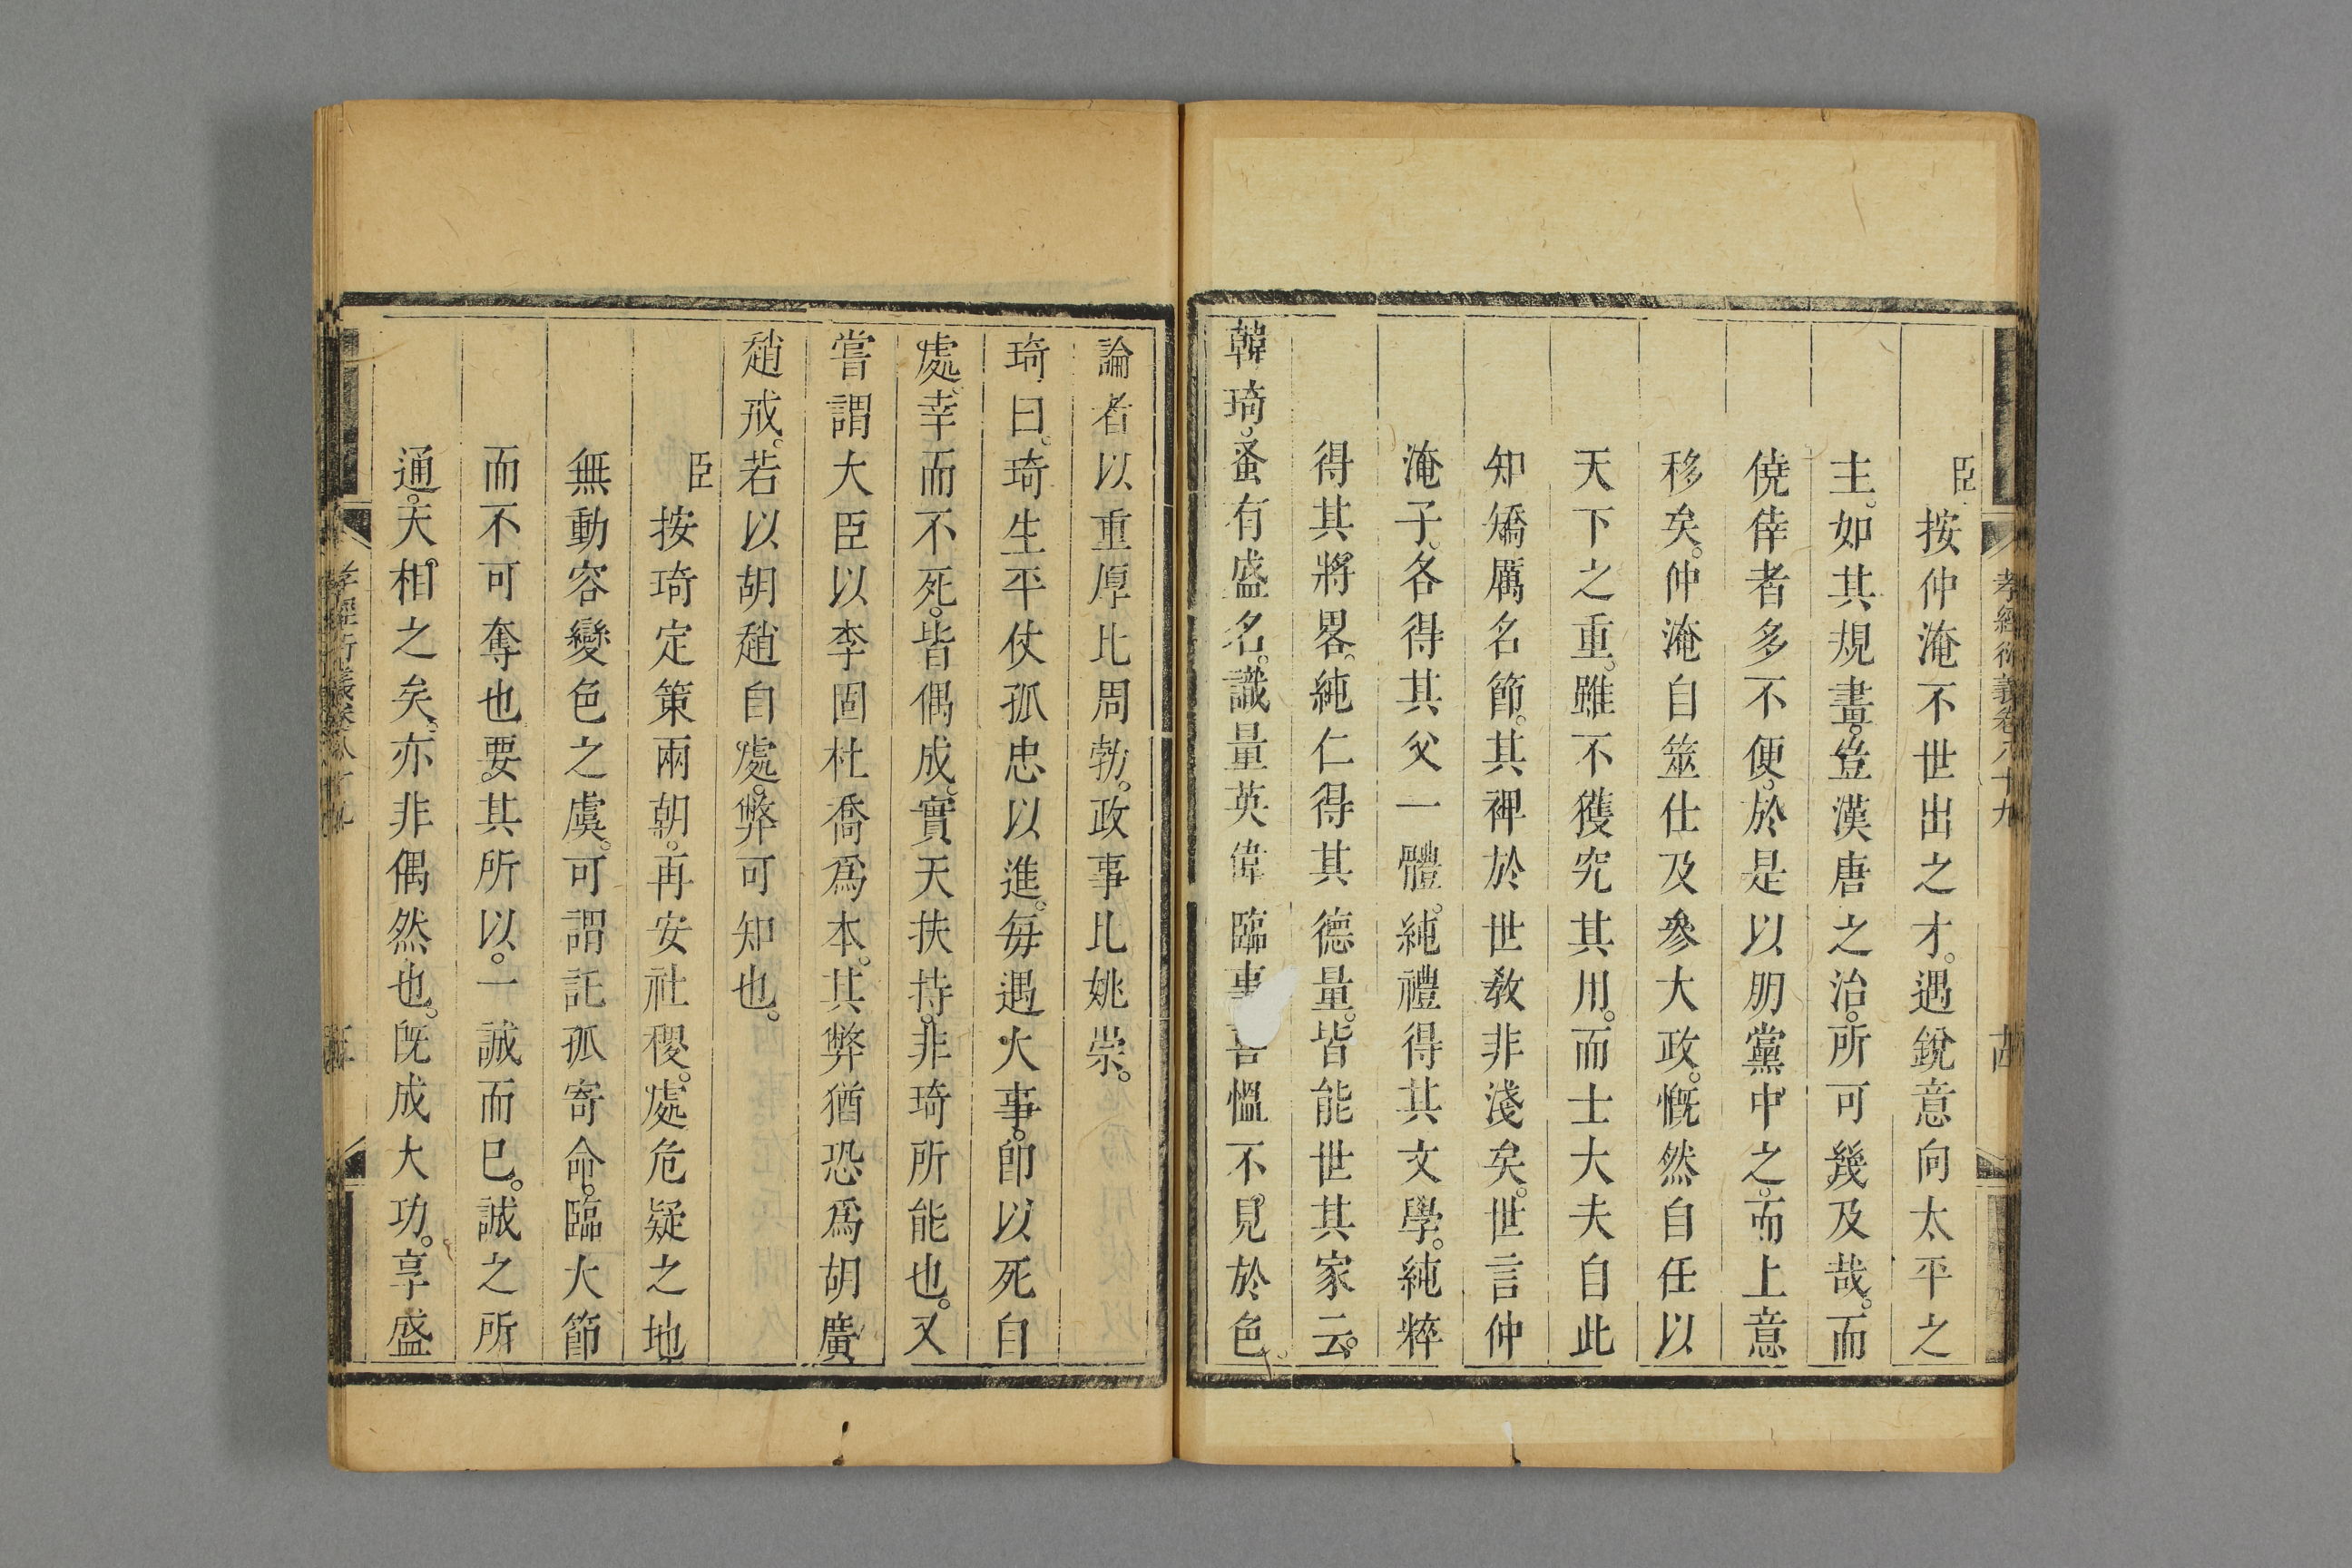 孝經衍義卷八十九
臣按仲淹不世出之才。遇銳意向太平之
主。如其規畫。豈漢唐之治。所可幾及哉。而
僥倖者多不便。於是以朋黨中之。而上意
移矣。仲淹自筮仕及參大政。慨然自任以
天下之重。雖不獲究其用。而士大夫自此
知矯厲名節。其裨於世敎非淺矣。世言仲
淹子。各得其父一體。純禮得其文學。純粹
得其將畧。純仁得其德量。皆能世其家云。
韓琦。蚤有盛名。識量英偉臨事喜慍不見於色。
論者以重厚比周勃。政事比姚崇。
琦曰。琦生平仗孤忠以進。每遇大事。卽以死自
處。幸而不死。皆偶成。實天扶持。非琦所能也。又
嘗謂大臣以李固杜喬爲本。其弊猶恐爲胡廣
趙戒。若以胡趙自處。弊可知也。
臣按琦定策兩朝。再安社稷。處危疑之地
無動容變色之虞。可謂託孤寄命。臨大節
而不可奪也。要其所以。一誠而已。誠之所
通。天相之矣。亦非偶然也。旣成大功。享盛
孝經衍義卷八十九